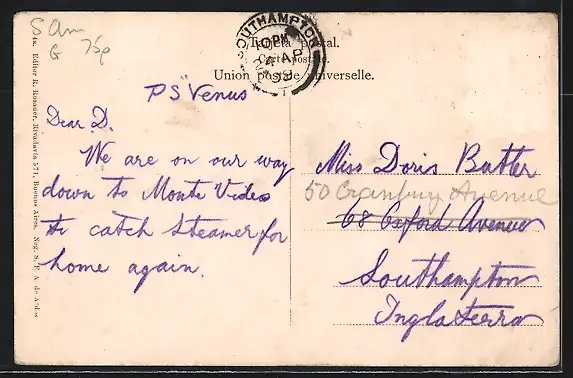 S Am
G 75p
SOUTHAMPTON
PM
AP
19
Tarjeta postal.
Carte postale.
Union postale universelle.
P S Venus
Dear D.
We are on our way
down to Monte Video
to catch steamer for
home again.
Miss Doris Butler
50 Cranbury Avenue
68 Oxford Avenue
Southampton
Inglaterra
Editor R. Rosauer, Rivadavia 571, Buenos Aires.